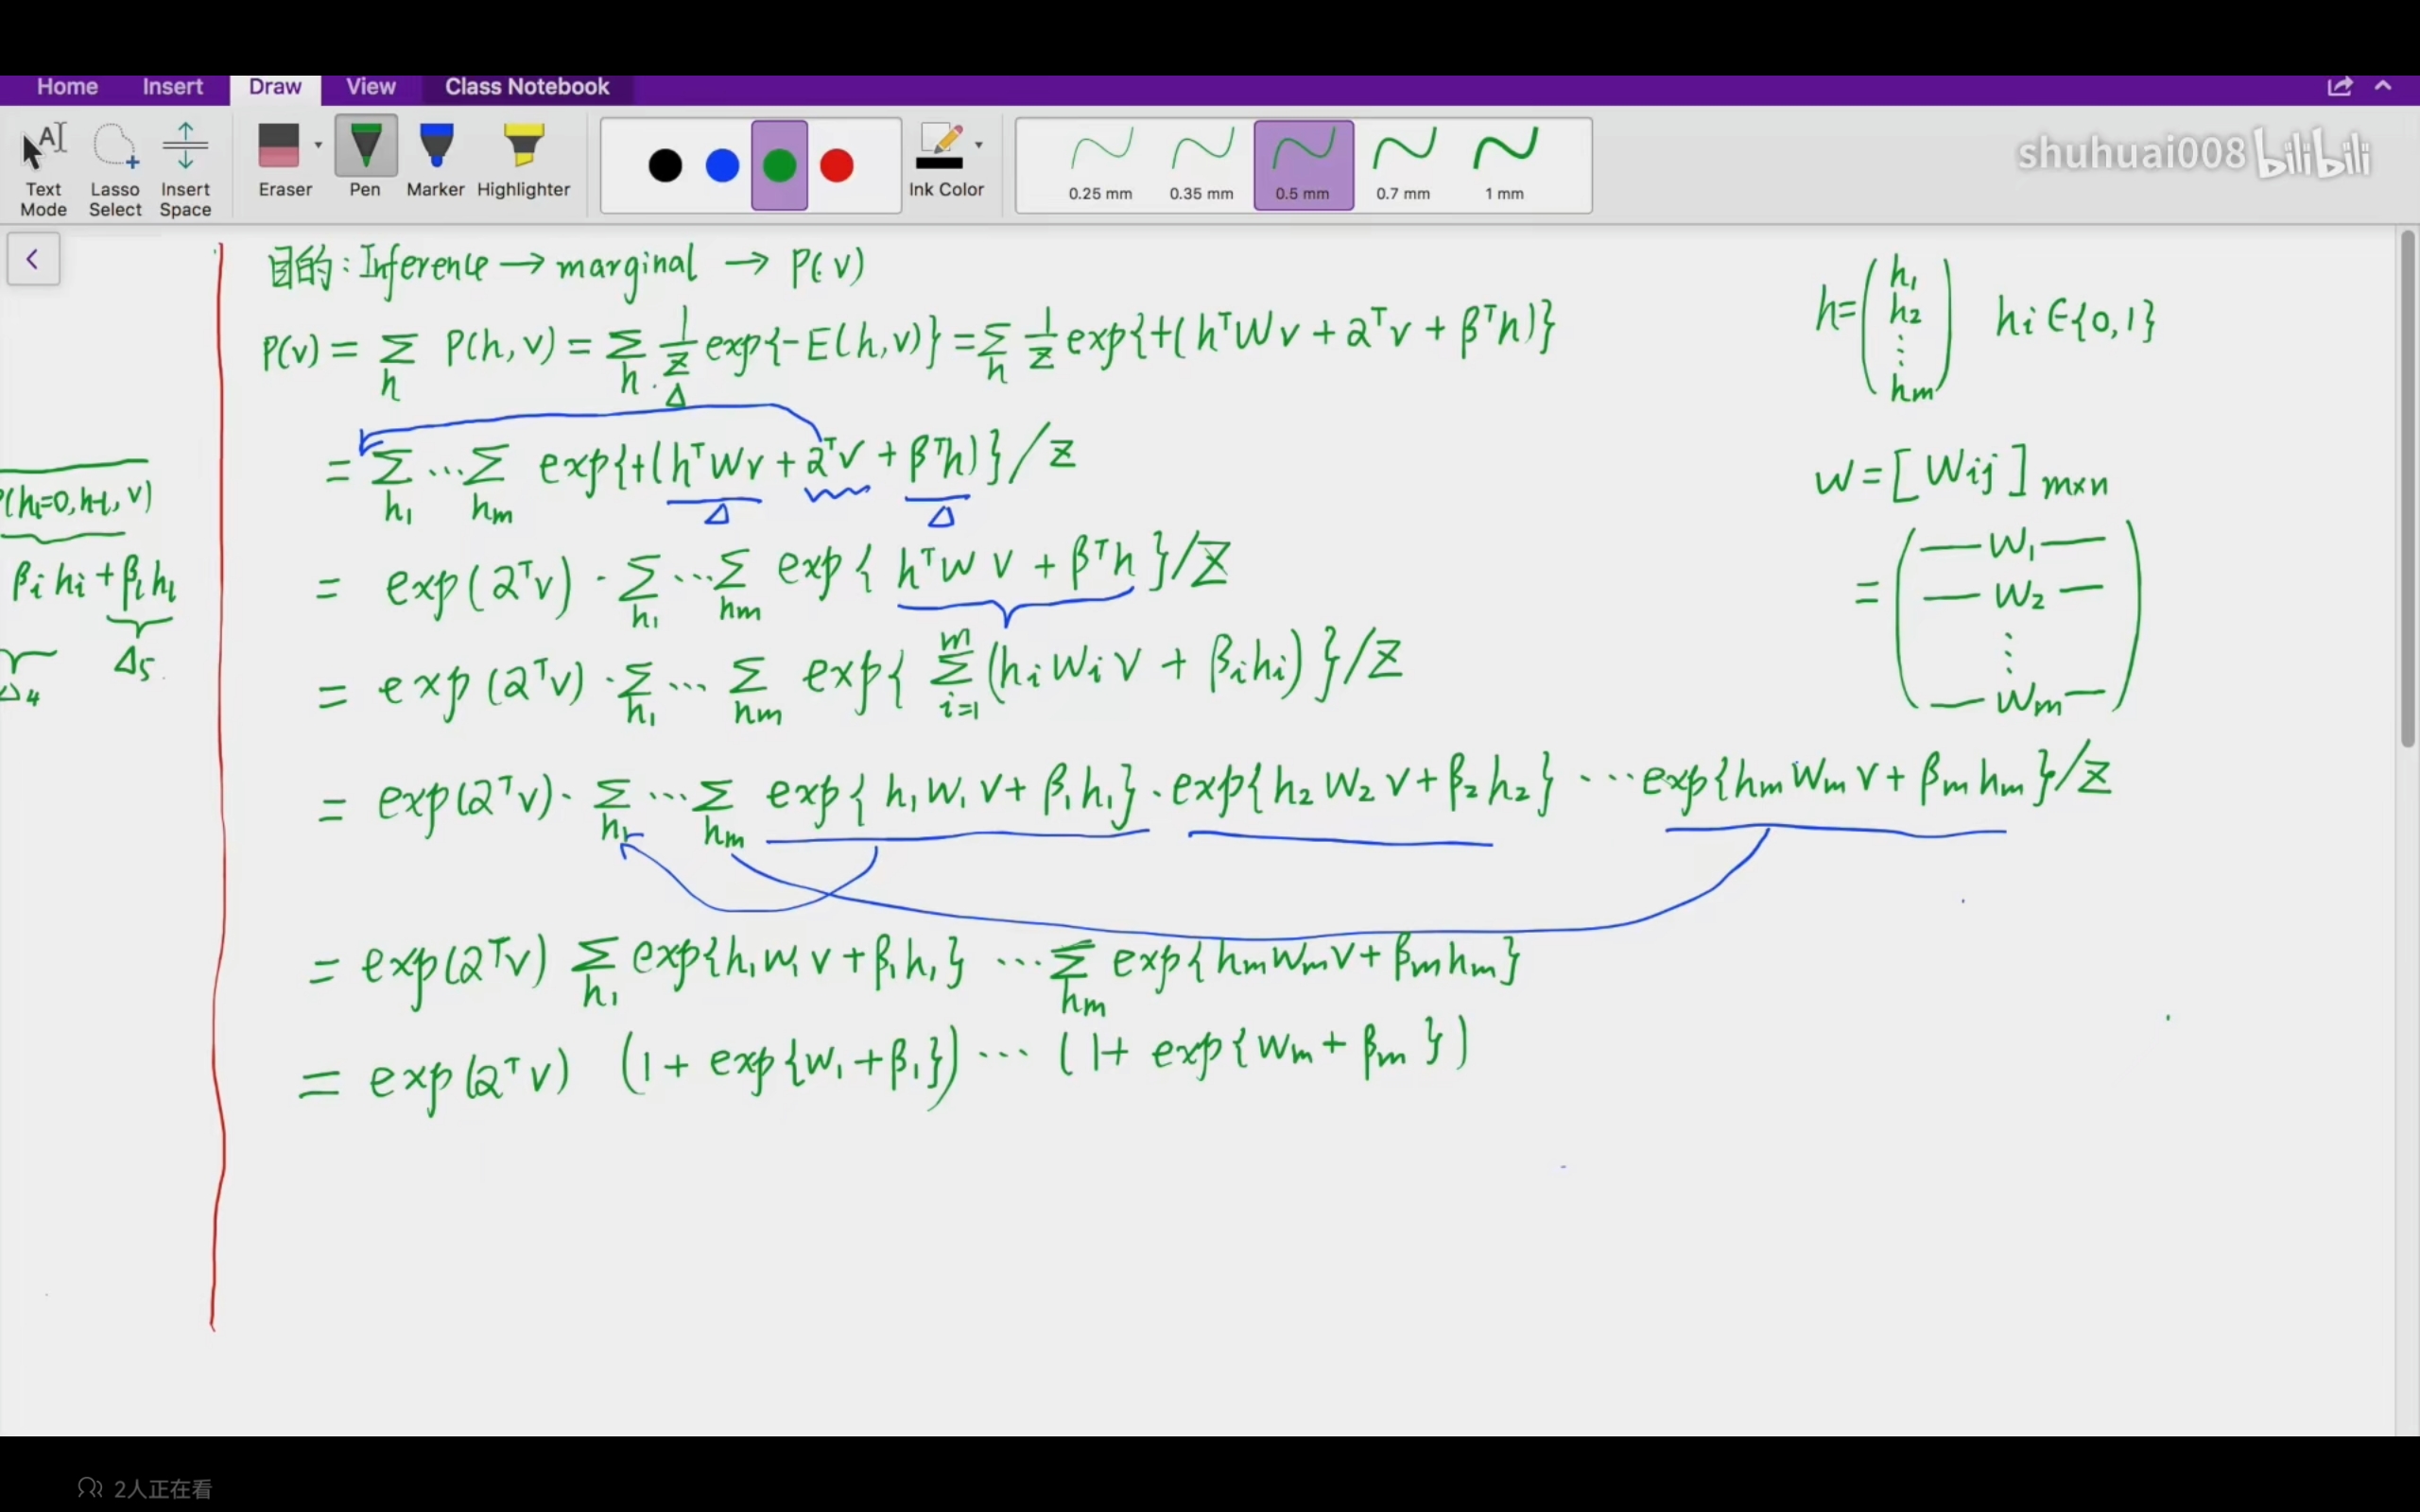 Home Insert Draw View Class Notebook
Text Mode Lasso Select Insert Space Eraser Pen Marker Highlighter Ink Color 0.25 mm 0.35 mm 0.5 mm 0.7 mm 1 mm
shuhuai008 bilibili
目的: Inference → marginal → P(v)
P(v) = Σ_h P(h, v) = Σ_h 1/Z exp{-E(h,v)} = Σ_h 1/Z exp{+(hᵀWv + αᵀv + βᵀh)}
Δ
= Σ_h₁ ⋯ Σ_hm exp{+(hᵀWv + αᵀv + βᵀh)}/Z
Δ Δ
= exp(αᵀv) · Σ_h₁ ⋯ Σ_hm exp{hᵀWv + βᵀh}/Z
= exp(αᵀv) · Σ_h₁ ⋯ Σ_hm exp{Σ_{i=1}^m (hᵢwᵢv + βᵢhᵢ)}/Z
= exp(αᵀv) · Σ_h₁ ⋯ Σ_hm exp{h₁w₁v + β₁h₁} · exp{h₂w₂v + β₂h₂} ⋯ exp{hmwmv + βmhm}/Z
= exp(αᵀv) Σ_h₁ exp{h₁w₁v + β₁h₁} ⋯ Σ_hm exp{hmwmv + βmhm}
= exp(αᵀv) (1 + exp{w₁ + β₁}) ⋯ (1 + exp{wm + βm})
h = (h₁ h₂ ⋮ hm) hi ∈ {0,1}
W = [wij] m×n
= (—w₁— —w₂— ⋮ —wm—)
(h_l=0, h-l, v)
βi hi + βl hl
Δ4 Δ5
2人正在看